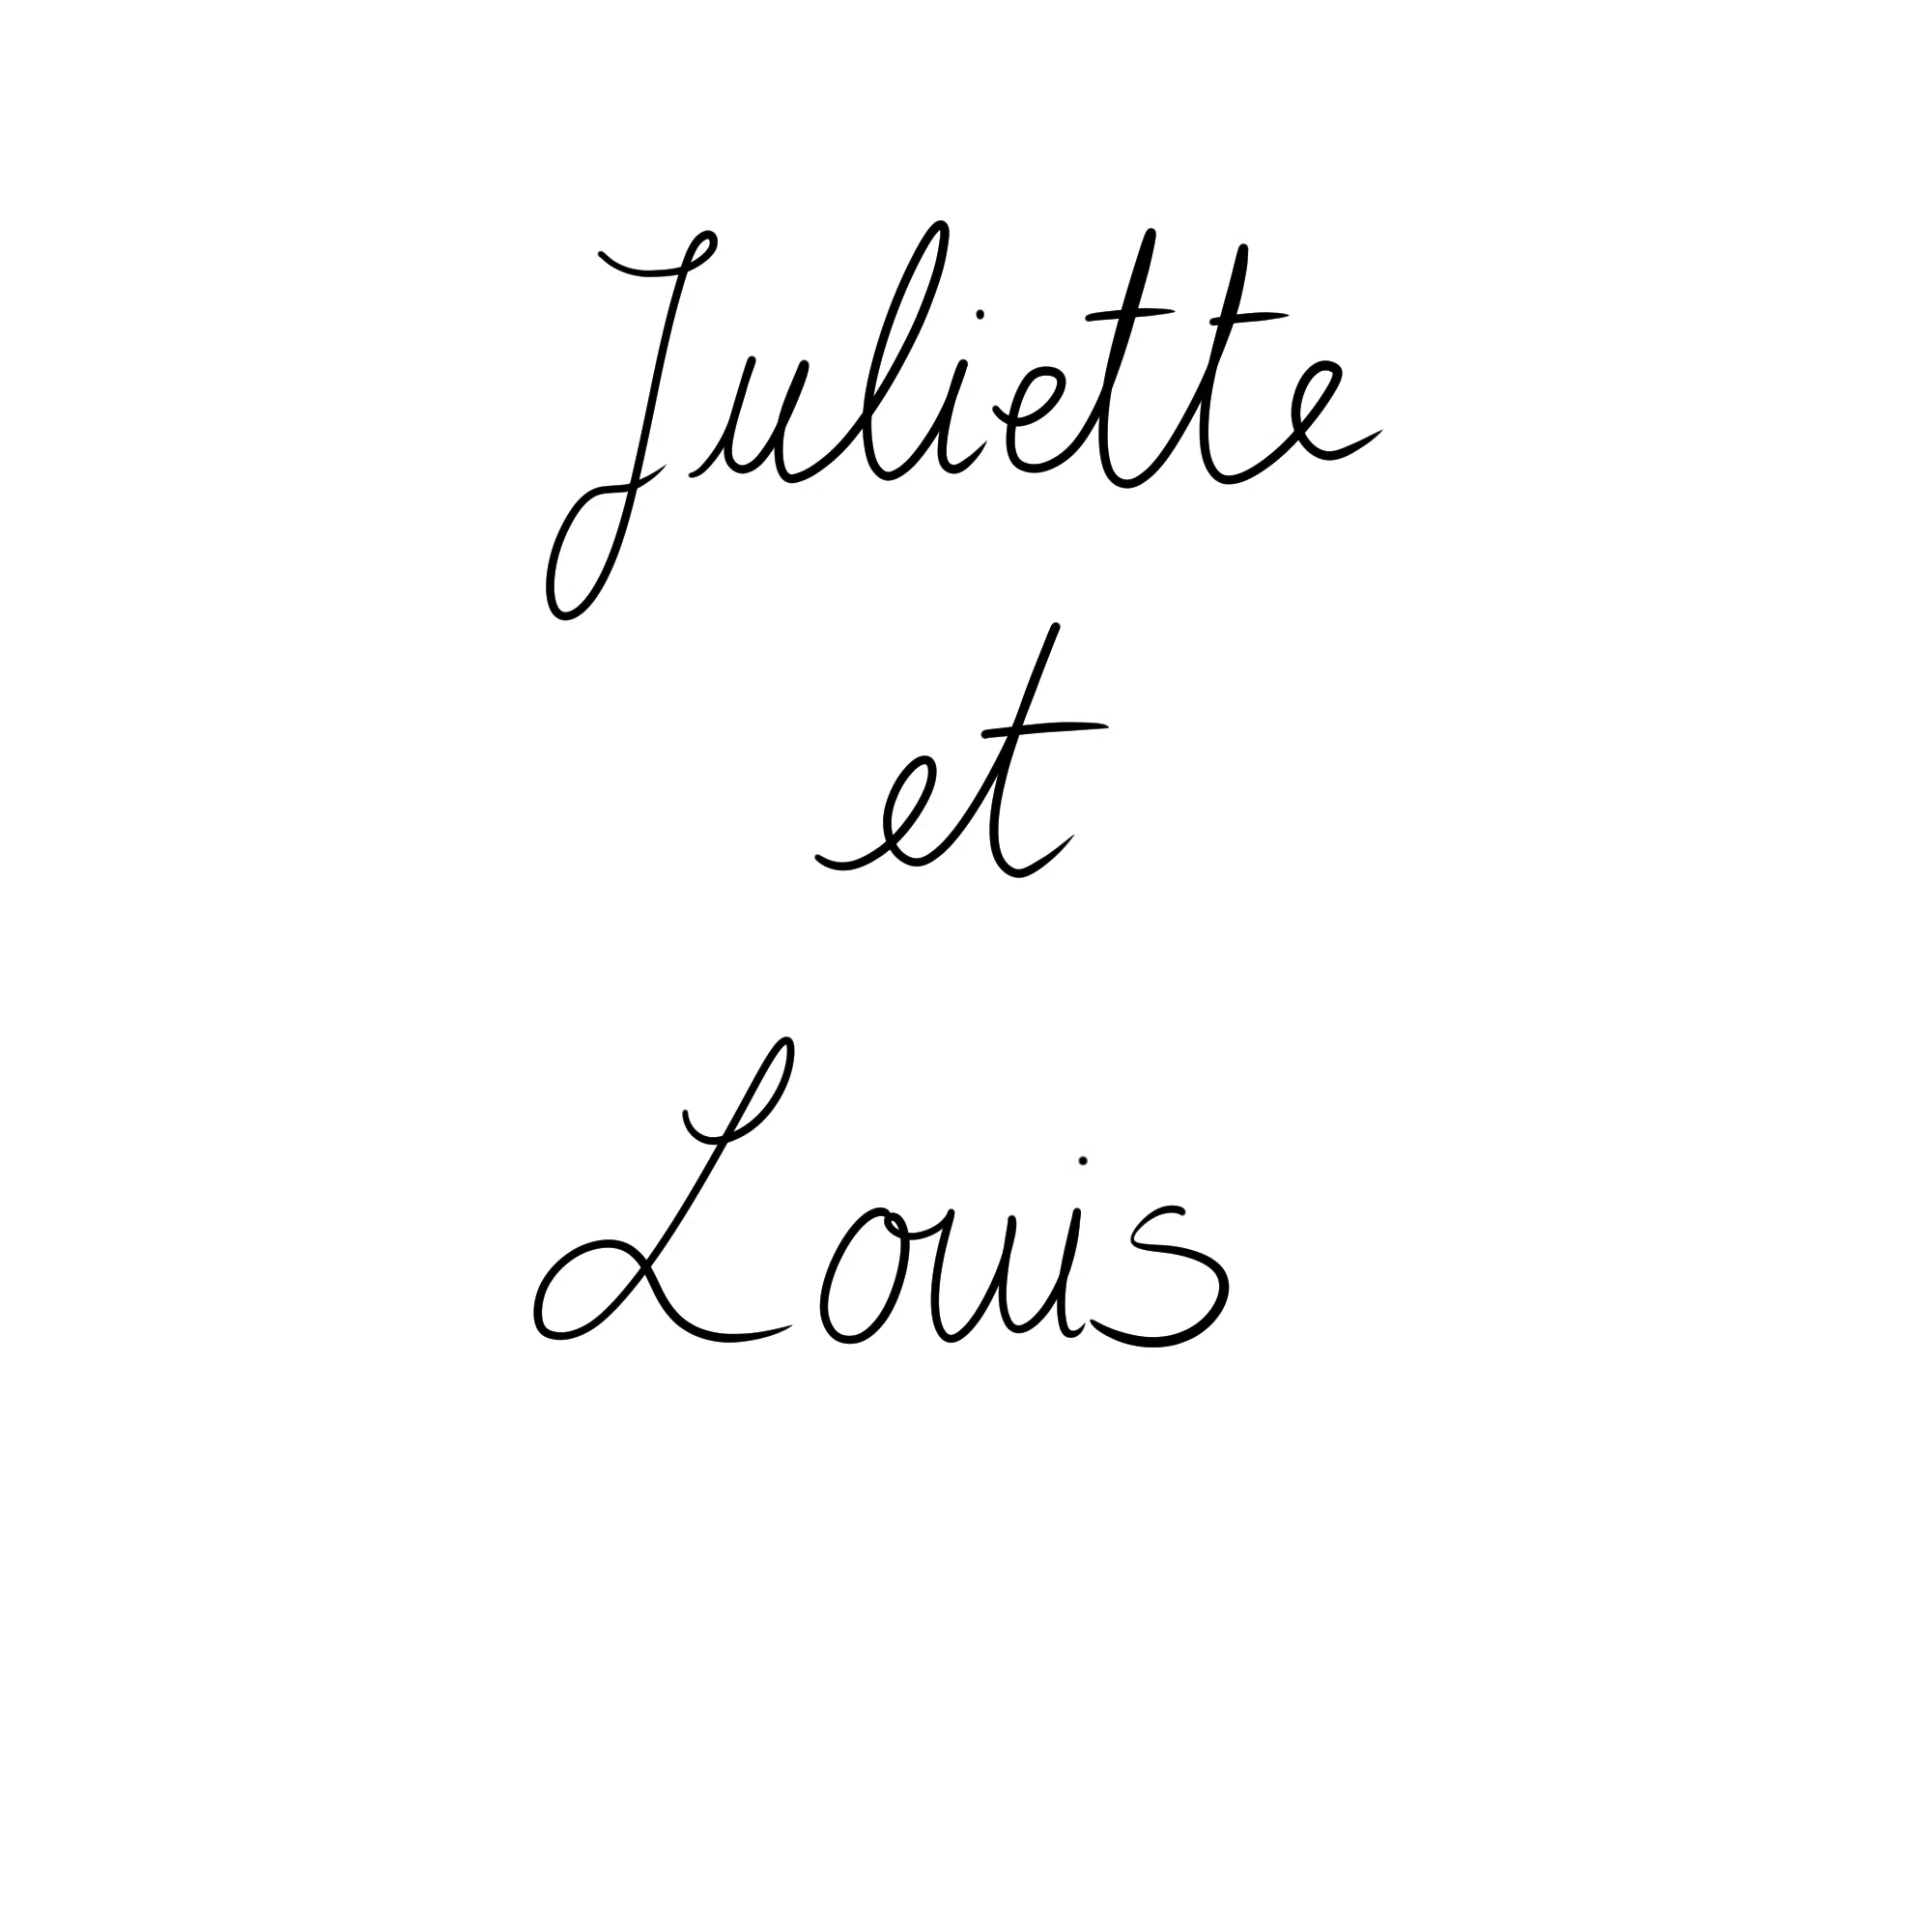 Juliette
et
Louis